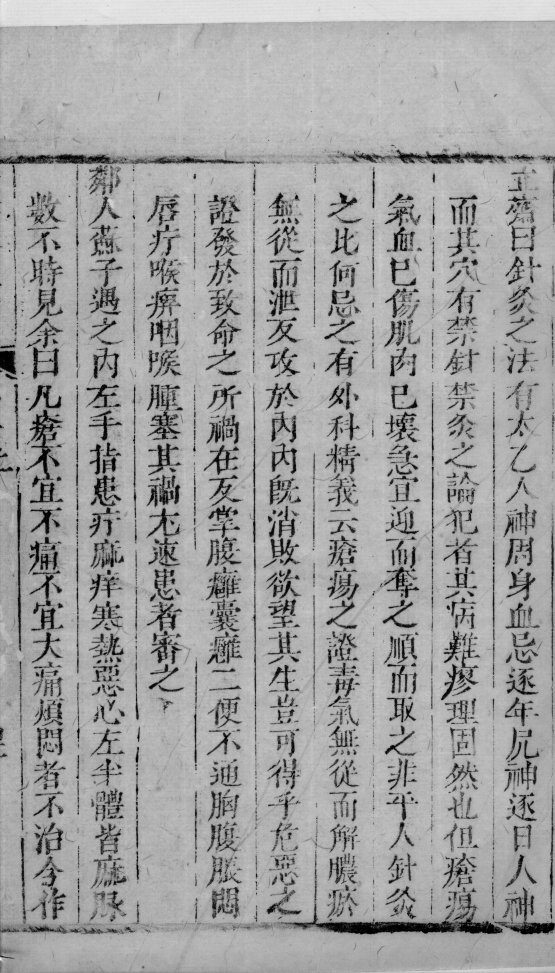 立齋曰針灸之法有太乙人神周身血忌逐年尻神逐日人神
而其穴有禁針禁灸之論犯者其病難瘳理固然也但瘡瘍
氣血已傷肌肉已壞急宜迎而奪之順而取之非平人針灸
之比何忌之有外科精義云瘡瘍之證毒氣無從而解膿瘀
無從而泄反攻於內內既消敗欲望其生豈可得乎危惡之
證發於致命之所禍在反掌腹癰囊癰二便不通胸腹脹悶
唇疔喉痹咽喉腫塞其禍尤速患者審之
鄰人蘇子遇之內左手指患疔麻痒寒熱惡心左半體皆麻脉
數不時見余曰凡瘡不宜不痛不宜大痛煩悶者不治今作